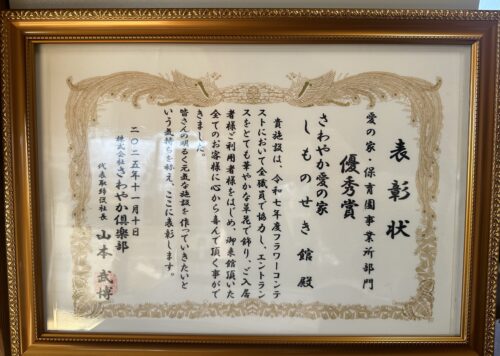 表彰状
愛の家・保育園事業所部門
優秀賞
さわやか愛の家
しものせき館 殿
貴施設は、令和七年度フラワーコンテ
ストにおいて全職員で協力し、エントラン
スをとても華やかな草花で飾り、ご入居
者様ご利用者様をはじめ、御来館頂いた
全てのお客様に心から喜んで頂く事がで
きました。
皆さんの明るく元気な施設を作っていきたいと
いう気持ちを称え、ここに表彰します。
二〇二五年十一月十日
株式会社さわやか倶楽部
代表取締役社長 山本武博